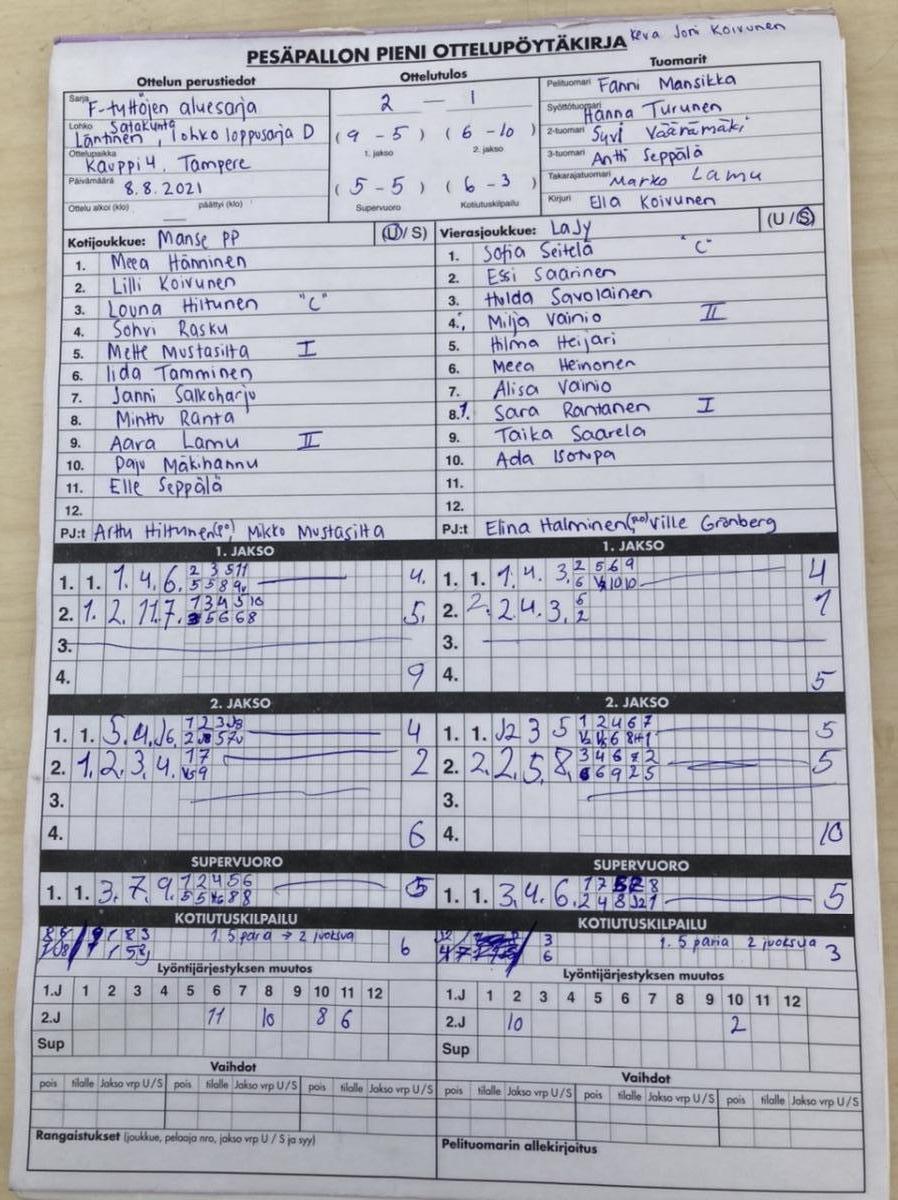 Keva Joni Koivunen
PESÄPALLON PIENI OTTELUPÖYTÄKIRJA
Ottelun perustiedot
Ottelutulos
Tuomarit
Sarja F-tyttöjen aluesarja
Lohko Satakunta
Läntinen, lohko loppusarja D
Ottelupaikka Kauppi 4, Tampere
Päivämäärä 8.8.2021
Ottelu alkoi (klo) päättyi (klo)
2 — 1
(9 - 5) (6 - 10)
1. jakso 2. jakso
(5 - 5) (6 - 3)
Supervuoro Kotiutuskilpailu
Pelituomari Fanni Mansikka
Syöttötuomari Hanna Turunen
2-tuomari Suvi Väärämäki
3-tuomari Antti Seppälä
Takarajatuomari Marko Lamu
Kirjuri Ella Koivunen
Kotijoukkue: Manse PP (U/S)
1. Meea Hänninen
2. Lilli Koivunen
3. Louna Hiltunen "C"
4. Sohvi Rasku
5. Mette Mustasilta I
6. Iida Tamminen
7. Janni Salkoharju
8. Minttu Ranta
9. Aara Lamu II
10. Paju Mäkihannu
11. Elle Seppälä
12.
PJ:t Arttu Hiltunen(po), Mikko Mustasilta
Vierasjoukkue: LaJy (U/S)
1. Sofia Seitelä "C"
2. Essi Saarinen
3. Hulda Savolainen
4. Milja Vainio II
5. Hilma Heijari
6. Meea Heinonen
7. Alisa Vainio
8. Sara Rantanen I
9. Taika Saarela
10. Ada Isotupa
11.
12.
PJ:t Elina Halminen(po) Ville Grönberg
1. JAKSO
1. 1. 1. 4. 6. 2 3 5 11 4.
5 5 8 9
2. 1. 2. 11. 7. 1 3 4 5 10 5.
3 5 6 6 8
3.
4. 9
1. JAKSO
1. 1. 1. 4. 3. 2 5 6 9 4
2. 2. 2. 4. 3. 5 1
2
3.
4. 5
2. JAKSO
1. 1. 5. 4. 4
2. 1. 2. 3. 4. 17 2
3.
4. 6
2. JAKSO
1. 1. J2 3 5 1 2 4 6 7 5
2. 2. 2. 5. 8. 3 4 6 5
6 6 9 2 5
3.
4. 10
SUPERVUORO
1. 1. 3. 7. 9. 1 2 4 5 6 5
SUPERVUORO
1. 1. 3. 4. 6. 5
KOTIUTUSKILPAILU
1. 5 paria → 2 juoksua 6
KOTIUTUSKILPAILU
3 1. 5 paria 2 juoksua 3
6
Lyöntijärjestyksen muutos
1.J 1 2 3 4 5 6 7 8 9 10 11 12
2.J 11 10 8 6
Sup
Lyöntijärjestyksen muutos
1.J 1 2 3 4 5 6 7 8 9 10 11 12
2.J 10 2
Sup
Vaihdot
pois tilalle Jakso vrp U/S pois tilalle Jakso vrp U/S pois tilalle Jakso vrp U/S
Vaihdot
pois tilalle Jakso vrp U/S pois tilalle Jakso vrp U/S pois tilalle Jakso vrp U/S
Rangaistukset (joukkue, pelaaja nro, jakso vrp U / S ja syy)
Pelituomarin allekirjoitus